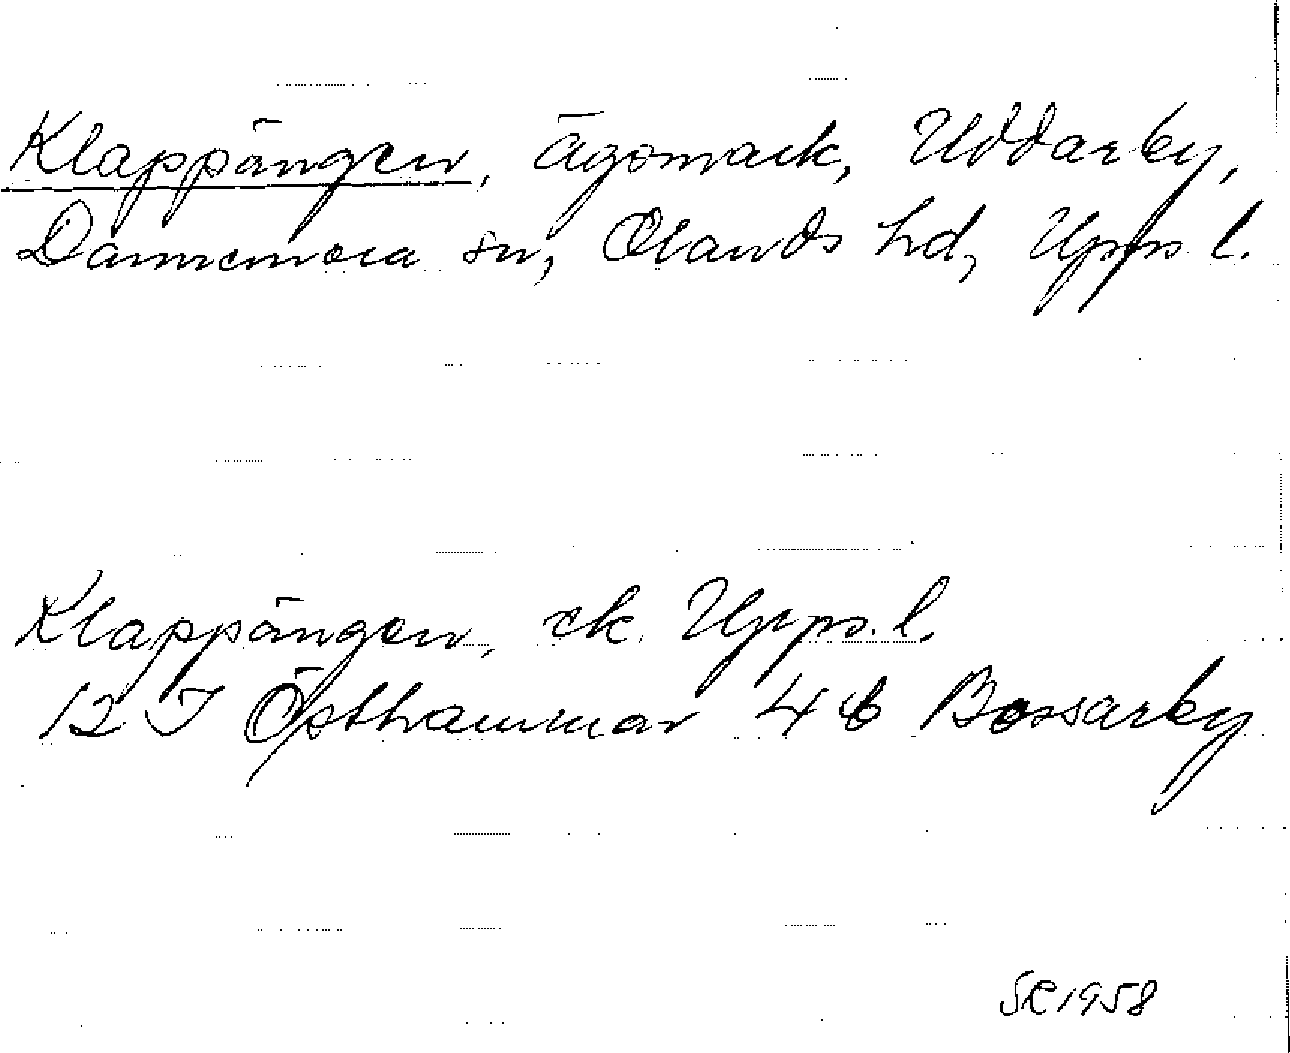 Klappängen, ägomark, Uddarby,
Dannemora sn, Olands hd, Upps. l.
Klappängen, ek. Upps. l.
12 I Östhammar 4 b Bossarby
SR 1958